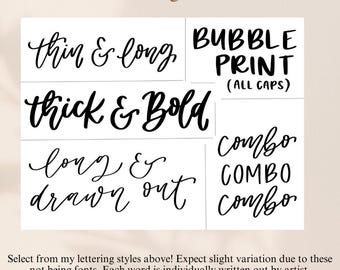 thin & long
BUBBLE
PRINT
(ALL CAPS)
thick & Bold
long &
drawn out
combo
COMBO
combo
Select from my lettering styles above! Expect slight variation due to these
not being fonts. Each word is individually written out by artist.